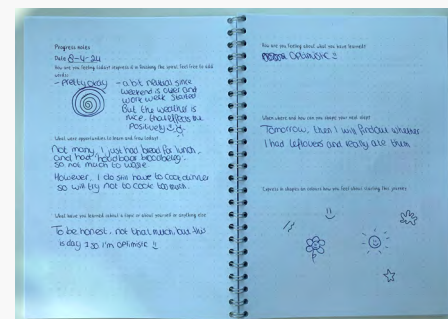 Progress notes
Date 8-4-24
How are you feeling today? express it in finishing the spiral, feel free to add
words:
- pretty okay - a bit neutral since
weekend is over and
work week started
But the weather is
nice, that effects me
positively :)
What were opportunities to learn and free today?
Not many, I just had bread for lunch,
and had
so not much to waste
However, I do still have to cook dinner
so will try not to cook too much.
What have you learned about a topic or about yourself or anything else
To be honest, not that much, but this
is day 1 so I'm optimistic :)
How are you feeling about what you have learned?
optimistic :)
When where and how can you shape your next step?
Tomorrow, then I will find out whether
I had leftovers and really ate them
Express in shapes or colours how you feel about starting this journey